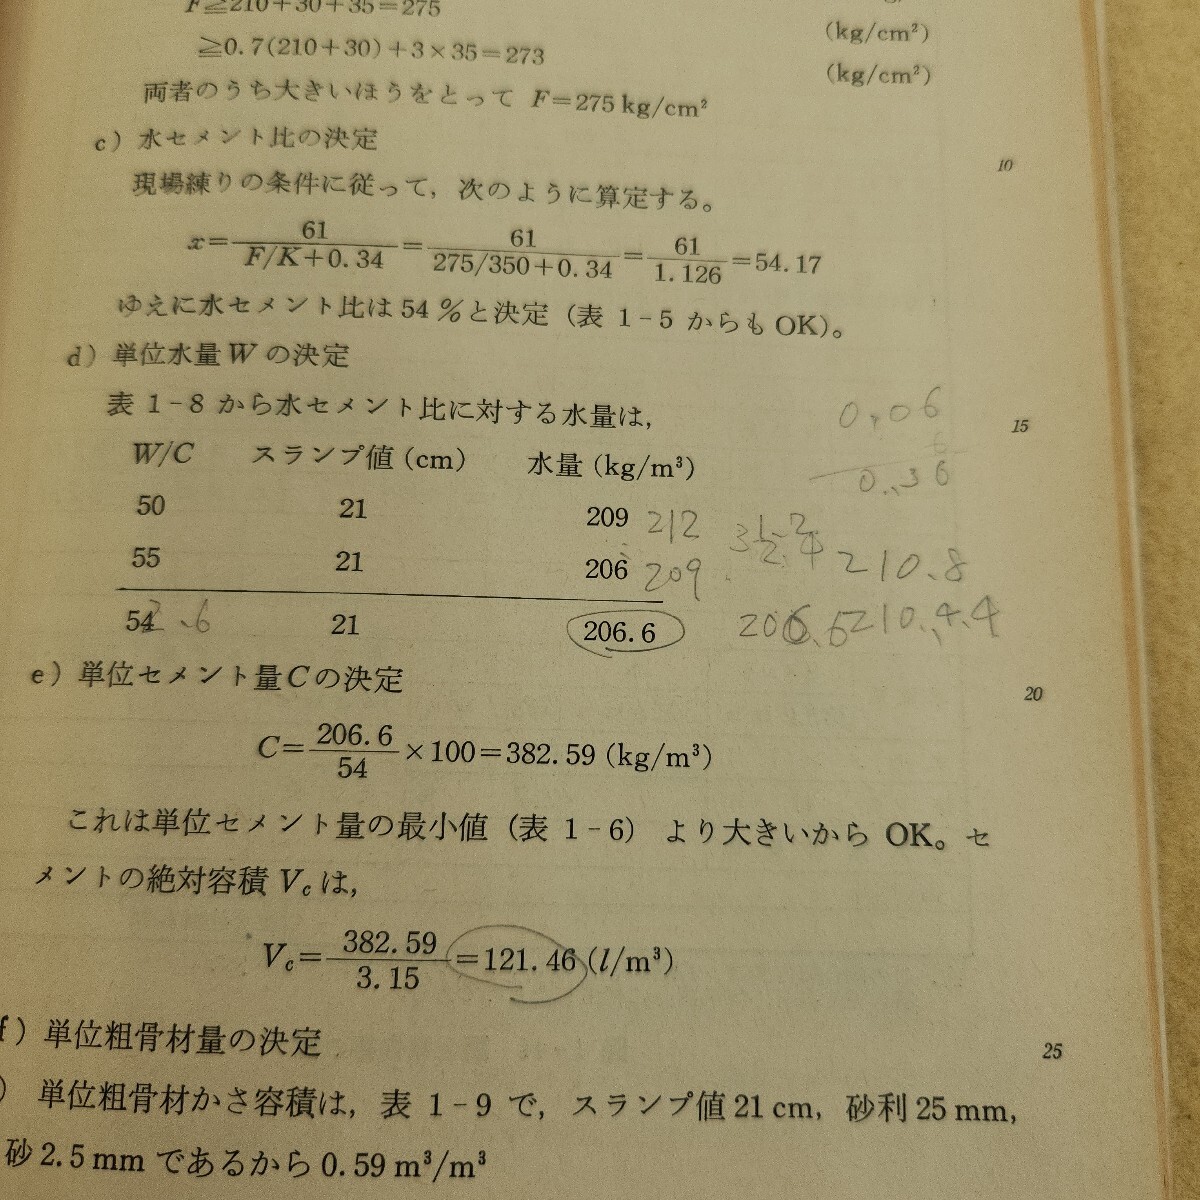 F≧210+30+35=275
(kg/cm²)
≧0.7(210+30)+3×35=273
(kg/cm²)
両者のうち大きいほうをとって F=275 kg/cm²
c) 水セメント比の決定
10
現場練りの条件に従って，次のように算定する。
x=61/(F/K+0.34)=61/(275/350+0.34)=61/1.126=54.17
ゆえに水セメント比は54%と決定（表1-5からもOK）。
d) 単位水量Wの決定
表1-8から水セメント比に対する水量は，
0.06
15
W/C スランプ値(cm) 水量(kg/m³)
0.36
50 21 209 212
55 21 206 209 210.8
54 .6 21 206.6
e) 単位セメント量Cの決定
20
C=206.6/54×100=382.59 (kg/m³)
これは単位セメント量の最小値（表1-6）より大きいからOK。セ
メントの絶対容積Vcは，
Vc=382.59/3.15=121.46 (l/m³)
f) 単位粗骨材量の決定
25
) 単位粗骨材かさ容積は，表1-9で，スランプ値21cm，砂利25mm，
砂2.5mmであるから0.59 m³/m³